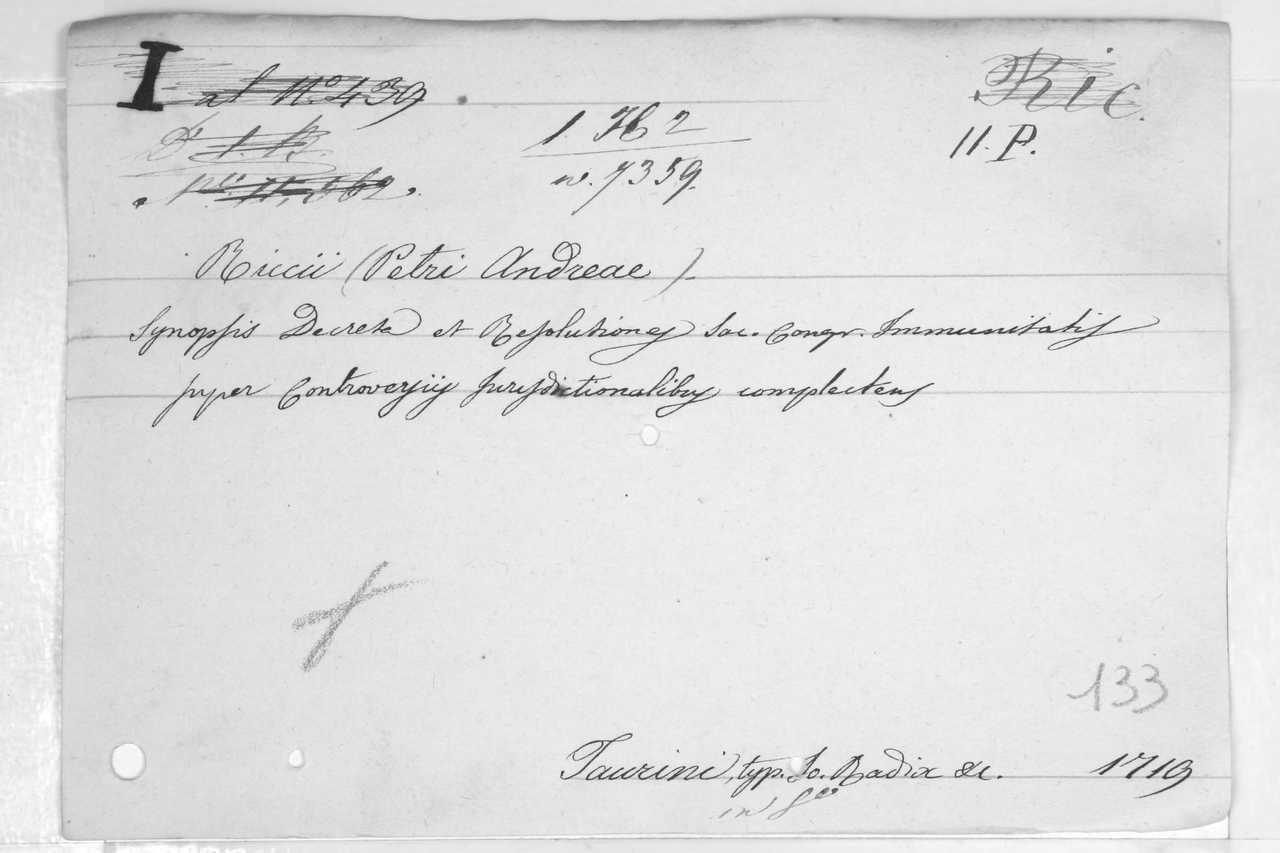 I al N.º 439
Dº 1. B.
Nº 11,562.
1. H 2
n. 7359.
Ric.
11. P.
Riccii (Petri Andreae)
Synopsis Decreta et Resolutiones Sac. Congr. Immunitatis
super Controversiis Jurisdictionalibus complectens
133
Taurini, typ. Jo. Radix &c. 1719
in 8º